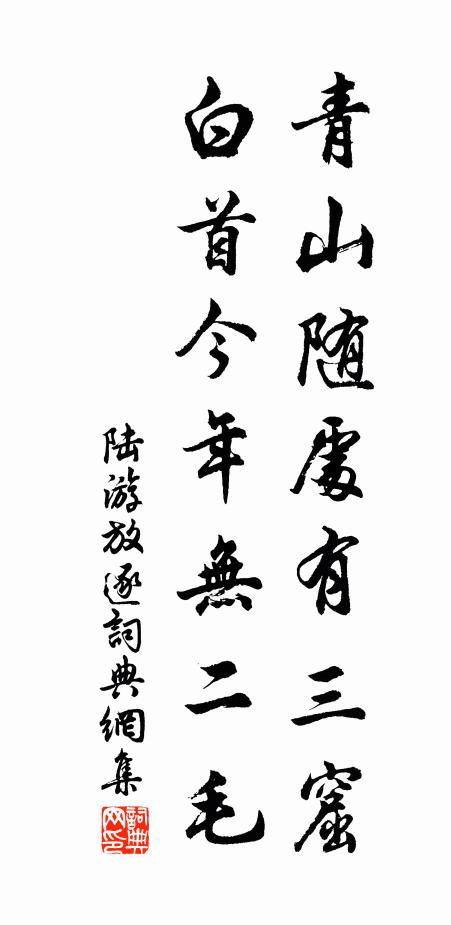 青山随處有三窟
白首今年無二毛
陆游放逐詞典網集
詞典網印